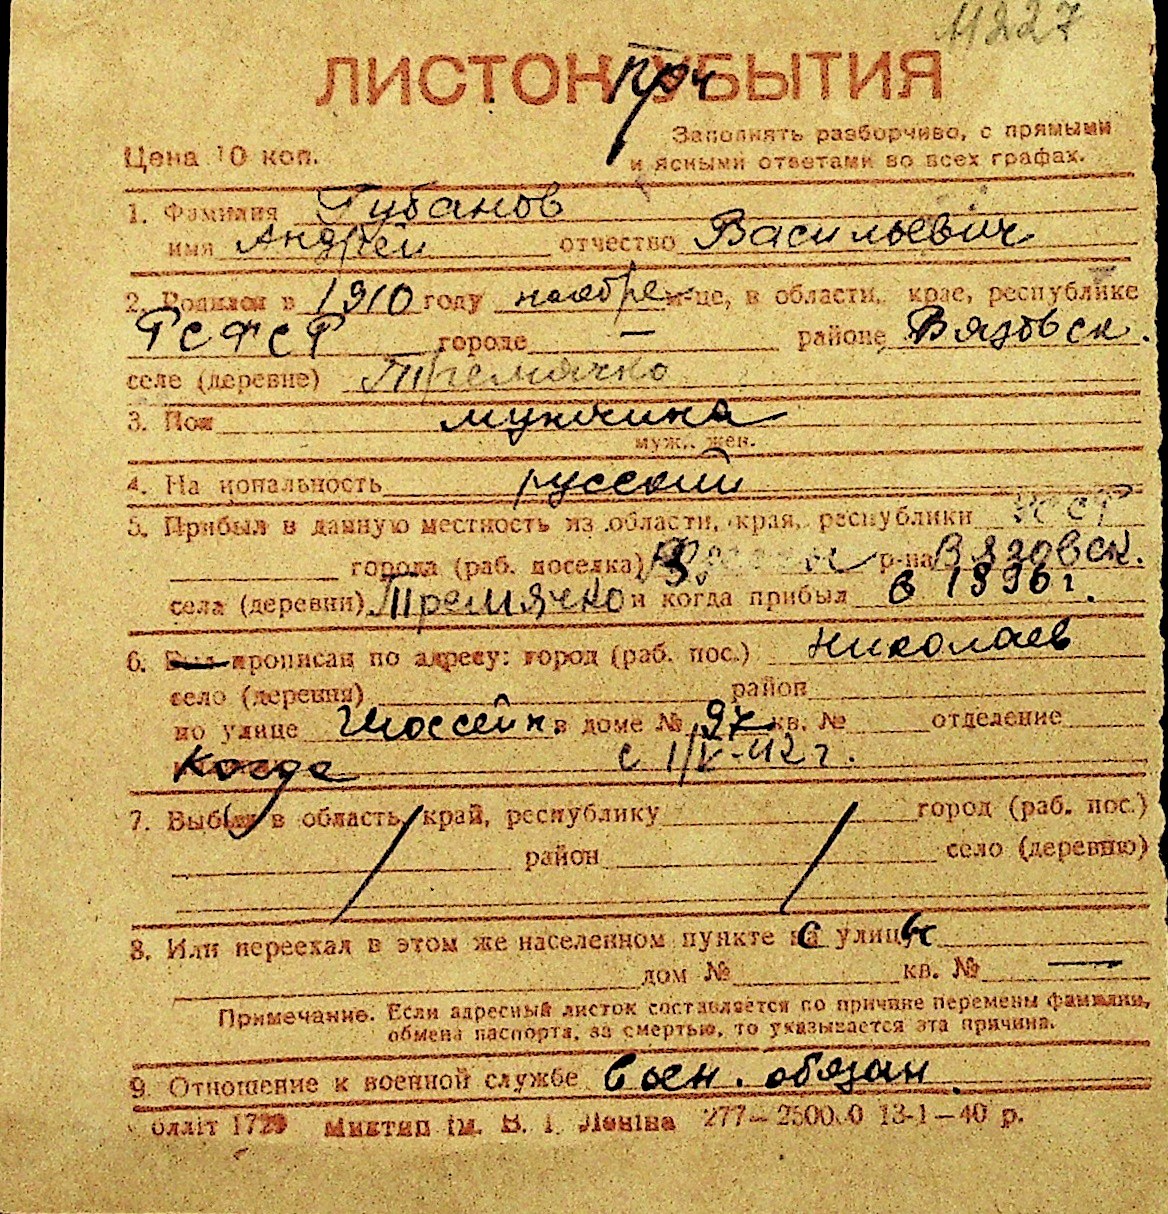 11227
ЛИСТОК при УБЫТИЯ
Цена 10 коп.
Заполнять разборчиво, с прямыми
и ясными ответами во всех графах.
1. Фамилия Губанов
имя Андрей отчество Васильевич
2. Родился в 1910 году ноябре м-це, в области, крае, республике
РСФСР городе — районе Вязовск.
селе (деревне) Тремячко
3. Пол мужчина
муж., жен.
4. Национальность русский
5. Прибыл в данную местность из области, края, республики
города (раб. поселка) р-на Вязовск.
села (деревни) Тремячко и когда прибыл в 1936 г.
6. Был прописан по адресу: город (раб. пос.) Николаев
село (деревня) район
по улице Шоссейн. в доме № кв. № отделение
Когда с 1/V-42 г.
7. Выбыл в область, край, республику город (раб. пос.)
район село (деревню)
8. Или переехал в этом же населенном пункте в улице
дом № кв. № —
Примечание. Если адресный листок составляется по причине перемены фамилии,
обмена паспорта, за смертью, то указывается эта причина.
9. Отношение к военной службе воен. обязан.
олліт 1729 Миктип ім. В. І. Леніна 277—25000 13-1—40 р.